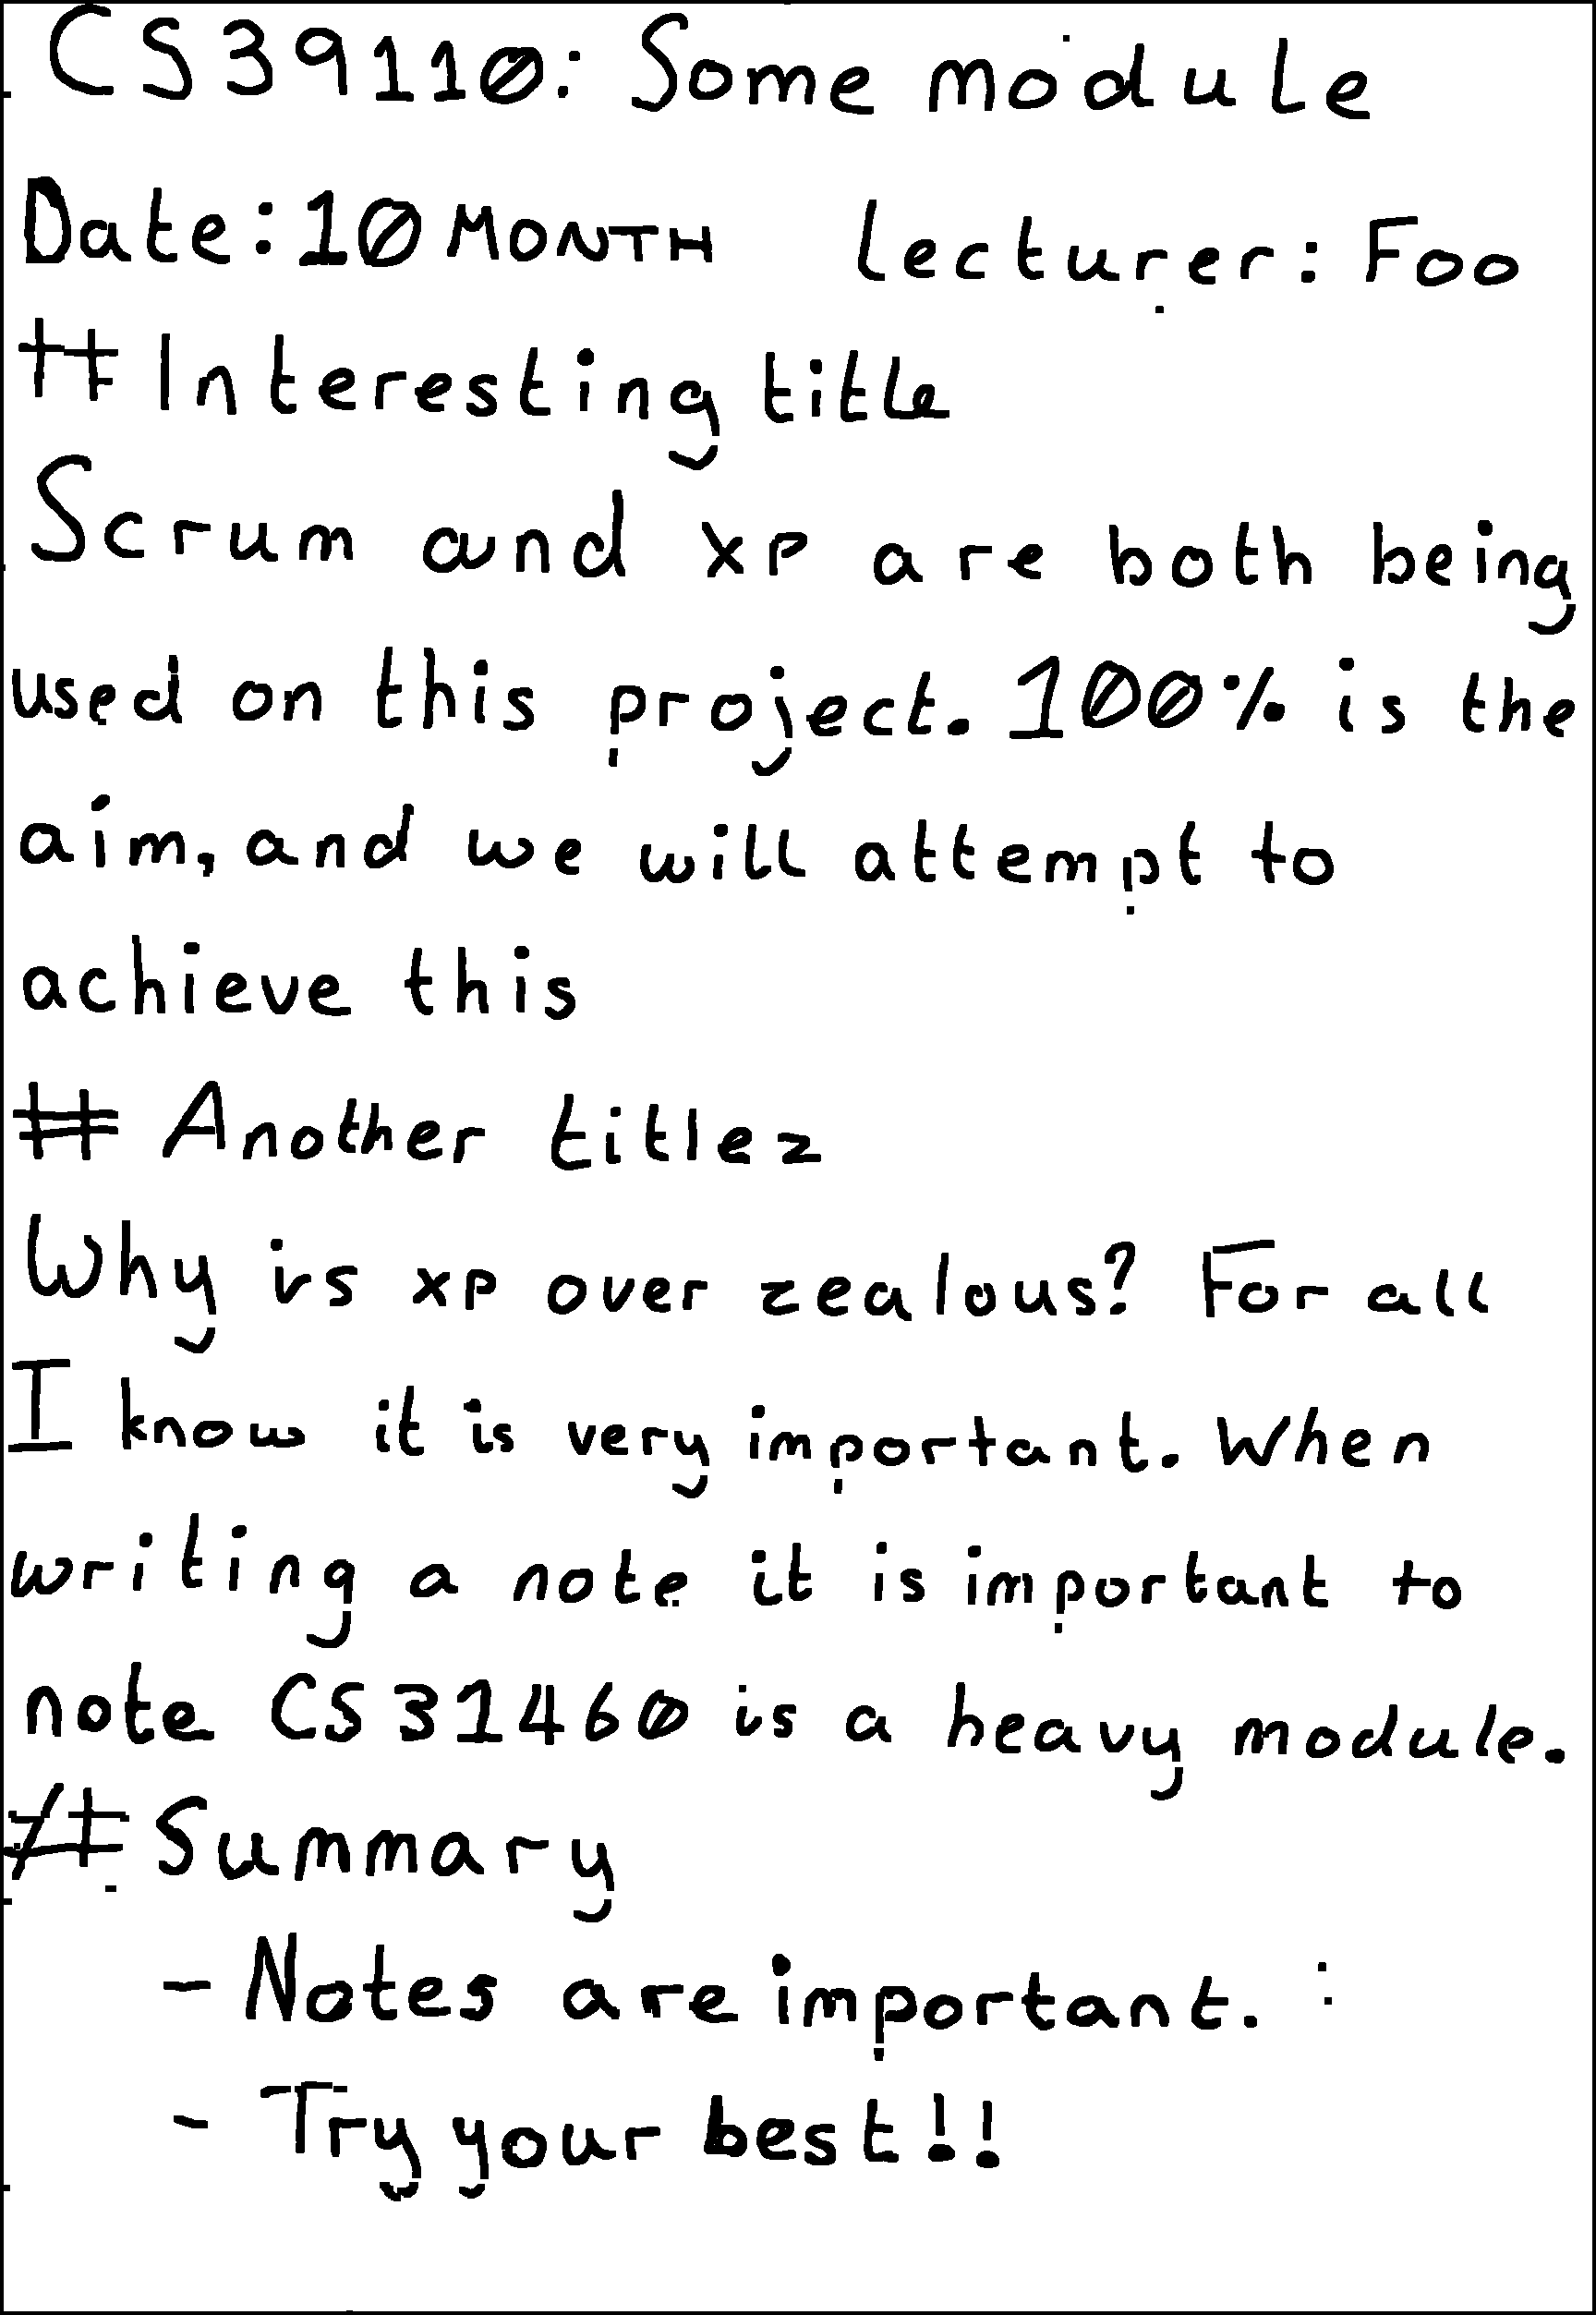 CS39110: Some module
Date: 10 MONTH lecturer: Foo
# Interesting title
Scrum and xp are both being
used on this project. 100% is the
aim, and we will attempt to
achieve this
# Another titlez
Why is xp over zealous? For all
I know it is very important. When
writing a note it is important to
note CS31460 is a heavy module.
# Summary
- Notes are important.
- Try your best!!